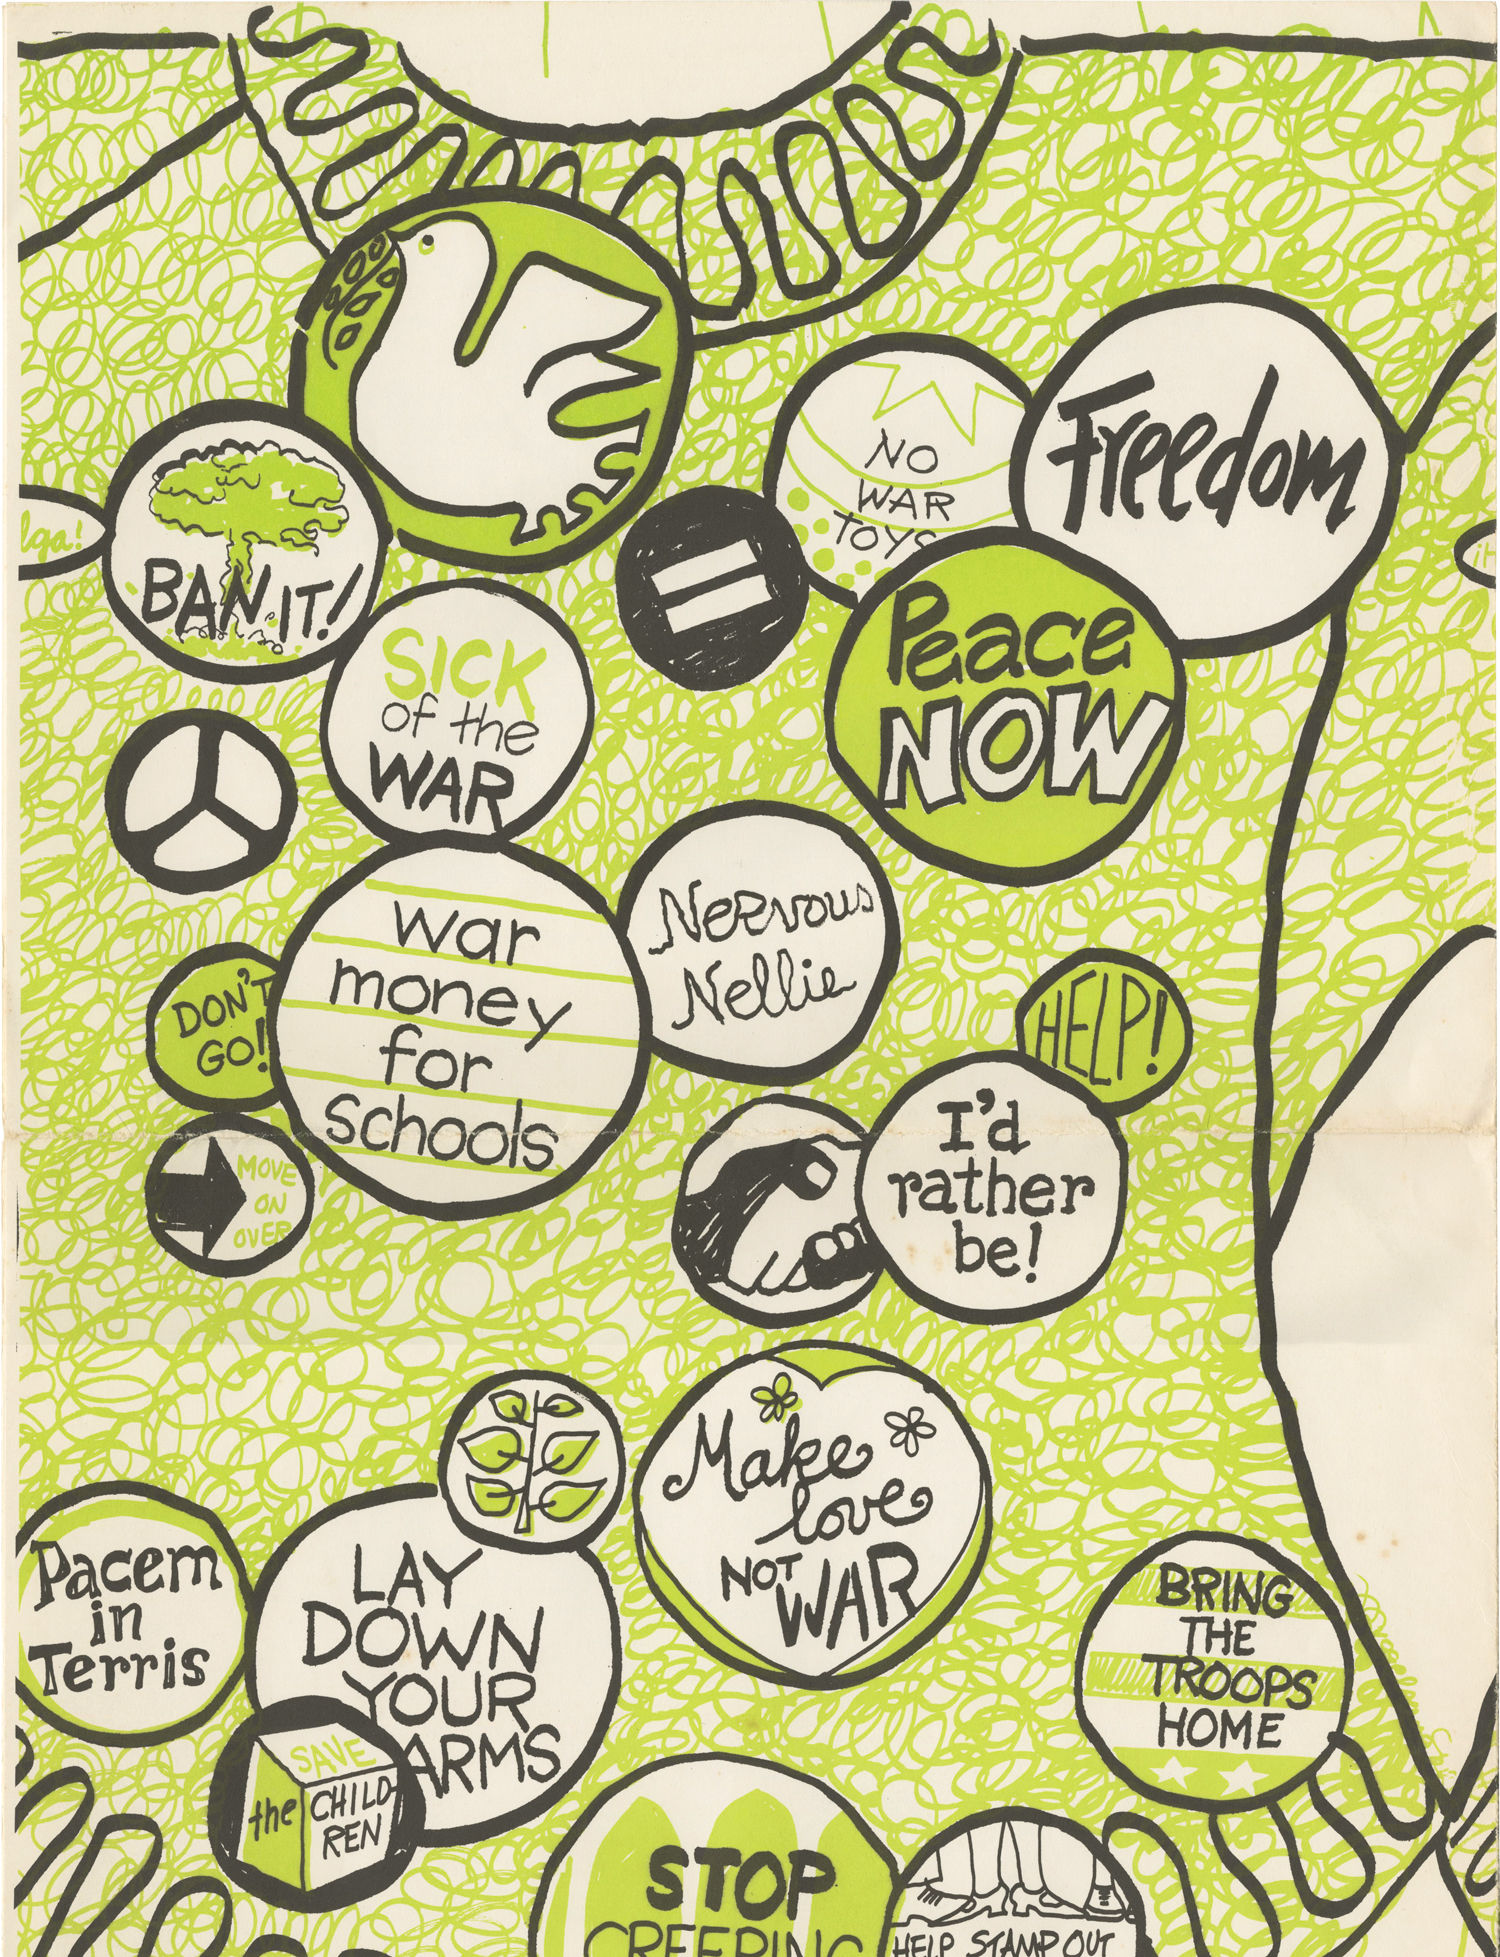 NO
WAR
TOYS
Freedom
lga!
BAN IT!
Peace
NOW
SICK
of the
WAR
War
money
for
schools
Nervous
Nellie
DON'T
GO!
HELP!
MOVE
ON
OVER
I'd
rather
be!
Make
love
NOT WAR
Pacem
in
Terris
LAY
DOWN
YOUR
ARMS
SAVE
the CHILD-
REN
BRING
THE
TROOPS
HOME
STOP
CREEPING
HELP STAMP OUT